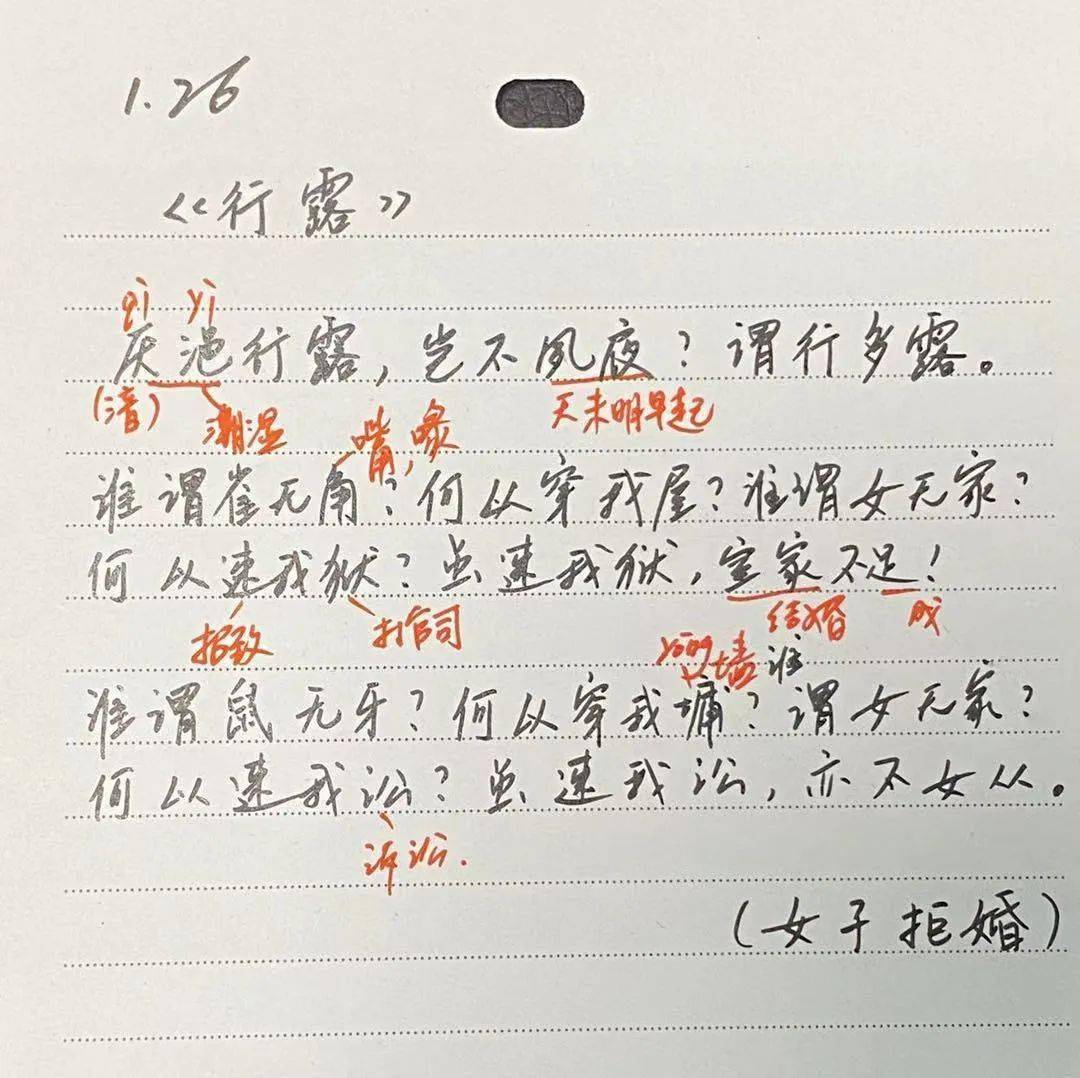 1.26
《行露》
qì yì
厌浥行露，岂不夙夜？谓行多露。
(湆) 潮湿 嘴，喙 天未明早起
谁谓雀无角？何以穿我屋？谁谓女无家？
何以速我狱？虽速我狱，室家不足！
招致 打官司 结婚 成
yōng 墙 谁
谁谓鼠无牙？何以穿我墉？谓女无家？
何以速我讼？虽速我讼，亦不女从。
诉讼.
(女子拒婚)